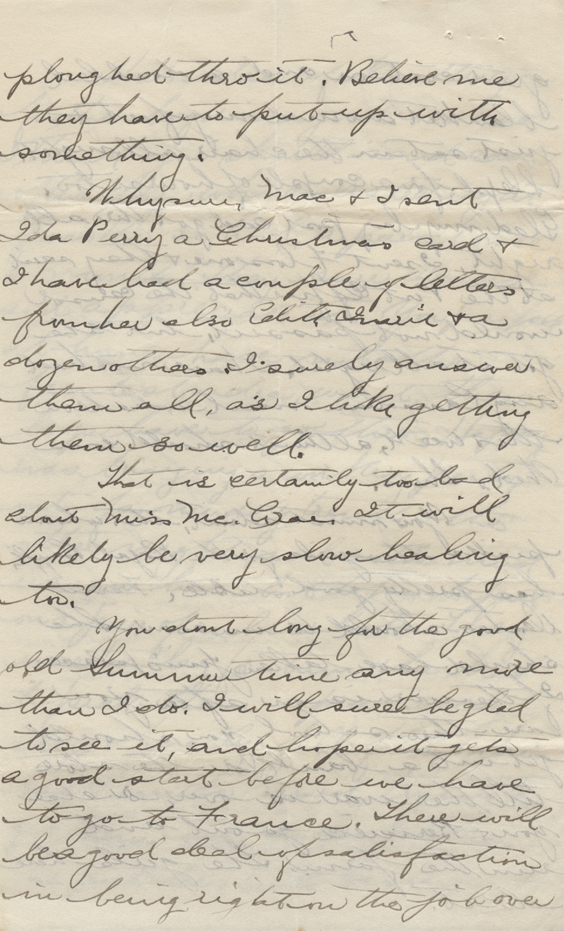 ploughed thro it. Believe me
they have to put up with
something.
Why sure, Mac & I sent
Ida Perry a Christmas card &
I have had a couple of letters
from her also Edith & a
dozen others. I surely answer
them all, as I like getting
them so well.
That is certainly too bad
about Miss Mc. It will
likely be very slow healing
too.
You dont long for the good
old Summer time any more
than I do. I will sure be glad
to see it, and hope it gets
a good start before we have
to go to France. There will
be a good deal of satisfaction
in being right on the job over